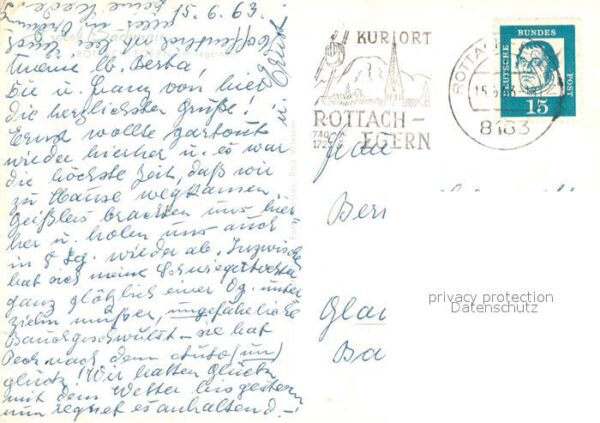 15.6.63.
Meine lb. Berta!
Dir u. Franz von hier
die herzlichsten Grüße!
Ernst wollte partout
wieder hierher u. es war
die höchste Zeit, daß wir
zu Hause wegkamen.
Geißlers brachten uns hier
her u. holen uns auch
in 8 Tg. wieder ab. Inzwischen
hat sich meine Schwiegertochter
ganz plötzlich einer Op. unter
ziehn müssen, ungefährliche
Bauchgeschwulst – sie hat
Pech nach dem Auto(un)
glück! Wir hatten Glück
mit dem Wetter bis gestern
nun regnet es anhaltend. –
KURORT
ROTTACH–
EGERN
8183
DEUTSCHE BUNDESPOST
15
Frau
Ber
privacy protection
Datenschutz
Ba